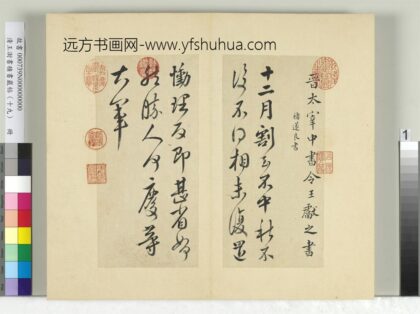 远方书画网-www.yfshuhua.com
故書000739N000000000
清王澍書積書巖帖(十九) 冊
晉太宰中書令王獻之書
褚遂良書
十二月割至不中秋不
復不得相未復還
慟理為即甚省如
然勝人何慶等
大軍
1